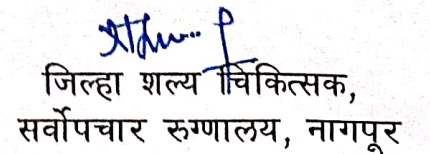 जिल्हा शल्य चिकित्सक,
सर्वोपचार रुग्णालय, नागपूर